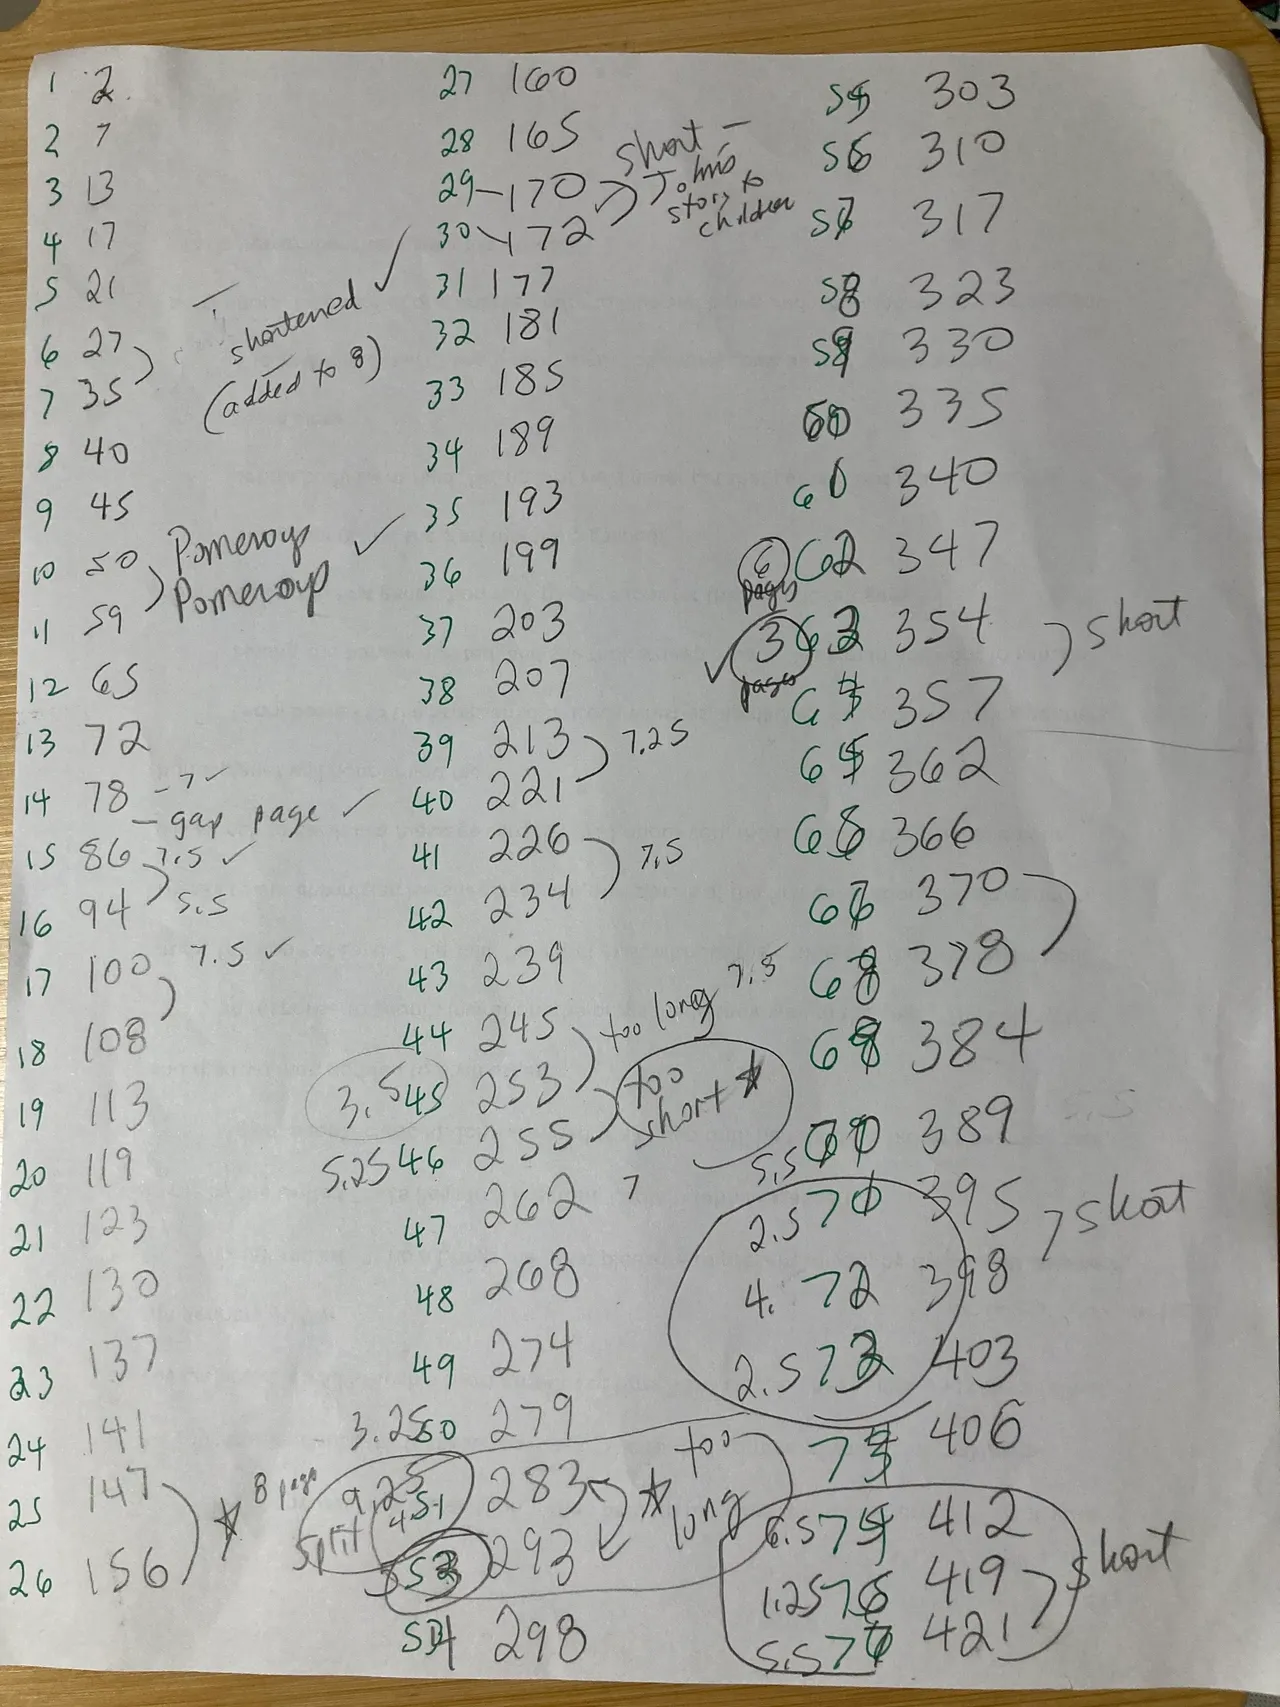 1 2
2 7
3 13
4 17
5 21
6 27
7 35
shortened
(added to 8)
8 40
9 45
10 50 Pomeroy
11 59 Pomeroy
12 65
13 72
14 78 - 7 ✓
- gap page ✓
15 86 7.5 ✓
16 94 5.5
17 100 7.5 ✓
18 108
19 113
20 119
21 123
22 130
23 137
24 141
25 147
26 156
8 page
27 160
28 165
29 170 short -
30 172 John's
story to
children
31 177
32 181
33 185
34 189
35 193
36 199
37 203
38 207
39 213 7.25
40 221
41 226 7.5
42 234
43 239
44 245 too long 7.5
3.5 45 253 too
short
5.25 46 255
47 262 7
48 268
49 274
3.25 50 279
9.25 4 51 283 too
long
split
5 53 293
54 298
55 303
56 310
57 317
58 323
59 330
60 335
61 340
6 pages 62 347
3 pages 63 354 short
64 357
65 362
66 366
67 370
68 378
69 384
5.5 70 389
2.5 71 395 short
4. 72 398
2.5 73 403
74 406
6.5 75 412
1.25 76 419 short
5.5 77 421